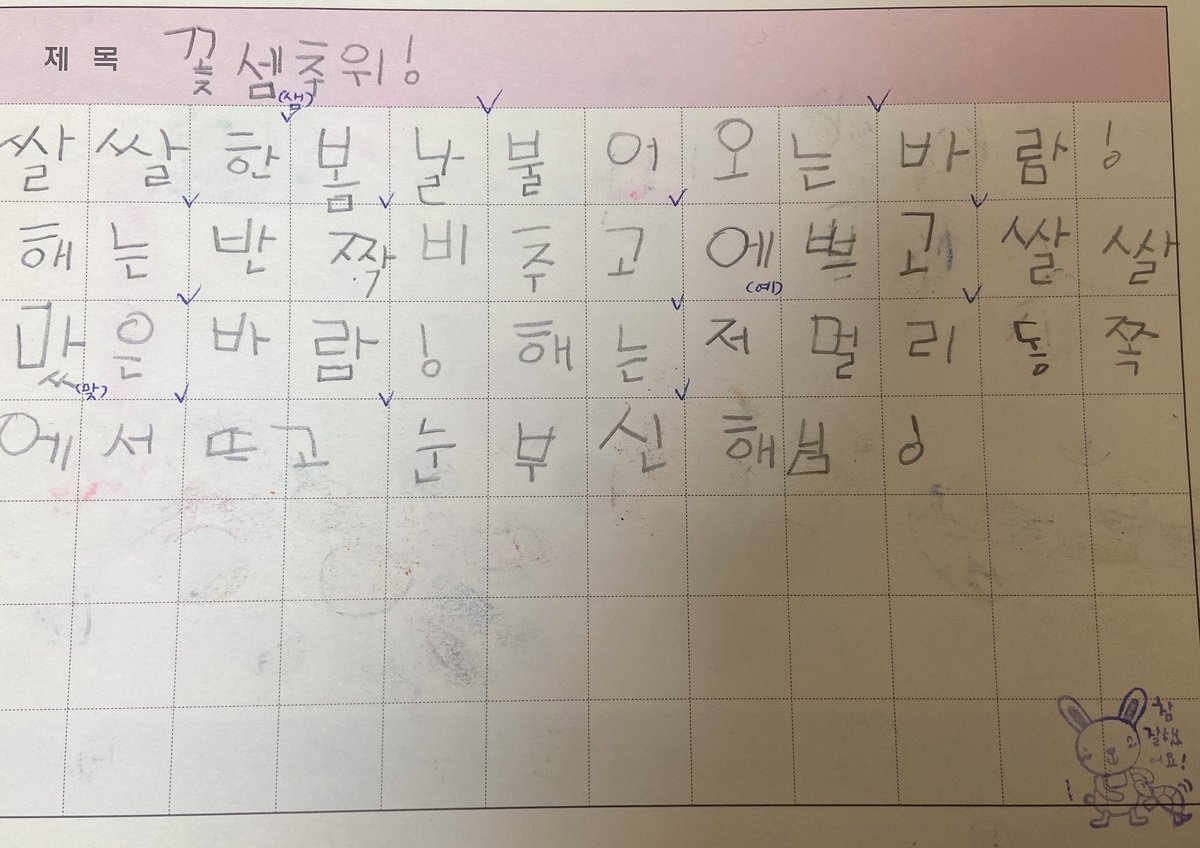 제 목 꽃셈추위!
(샘)
쌀쌀한봄날불어오는바람!
해는반짝비추고에쁘고쌀쌀
(예)
맜은바람!해는저멀리동쪽
(맞)
에서뜨고눈부신해님!
참 잘했